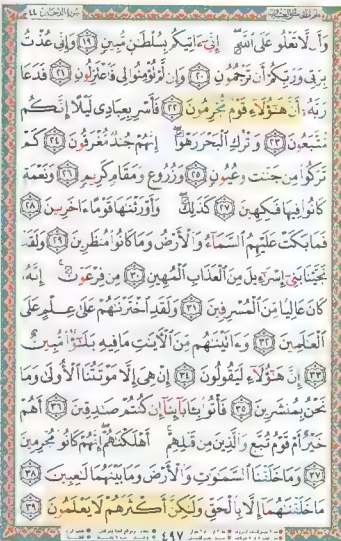 سورة الدخان ٤٤
وَأَن لَّا تَعْلُوا۟ عَلَى ٱللَّهِ ۖ إِنِّىٓ ءَاتِيكُم بِسُلْطَٰنٍ مُّبِينٍ ﴿١٩﴾ وَإِنِّى عُذْتُ
بِرَبِّى وَرَبِّكُمْ أَن تَرْجُمُونِ ﴿٢٠﴾ وَإِن لَّمْ تُؤْمِنُوا۟ لِى فَٱعْتَزِلُونِ ﴿٢١﴾ فَدَعَا
رَبَّهُۥٓ أَنَّ هَٰٓؤُلَآءِ قَوْمٌ مُّجْرِمُونَ ﴿٢٢﴾ فَأَسْرِ بِعِبَادِى لَيْلًا إِنَّكُم
مُّتَّبَعُونَ ﴿٢٣﴾ وَٱتْرُكِ ٱلْبَحْرَ رَهْوًا ۖ إِنَّهُمْ جُندٌ مُّغْرَقُونَ ﴿٢٤﴾ كَمْ
تَرَكُوا۟ مِن جَنَّٰتٍ وَعُيُونٍ ﴿٢٥﴾ وَزُرُوعٍ وَمَقَامٍ كَرِيمٍ ﴿٢٦﴾ وَنَعْمَةٍ
كَانُوا۟ فِيهَا فَٰكِهِينَ ﴿٢٧﴾ كَذَٰلِكَ ۖ وَأَوْرَثْنَٰهَا قَوْمًا ءَاخَرِينَ ﴿٢٨﴾
فَمَا بَكَتْ عَلَيْهِمُ ٱلسَّمَآءُ وَٱلْأَرْضُ وَمَا كَانُوا۟ مُنظَرِينَ ﴿٢٩﴾ وَلَقَدْ
نَجَّيْنَا بَنِىٓ إِسْرَٰٓءِيلَ مِنَ ٱلْعَذَابِ ٱلْمُهِينِ ﴿٣٠﴾ مِن فِرْعَوْنَ ۚ إِنَّهُۥ
كَانَ عَالِيًا مِّنَ ٱلْمُسْرِفِينَ ﴿٣١﴾ وَلَقَدِ ٱخْتَرْنَٰهُمْ عَلَىٰ عِلْمٍ عَلَى
ٱلْعَٰلَمِينَ ﴿٣٢﴾ وَءَاتَيْنَٰهُم مِّنَ ٱلْءَايَٰتِ مَا فِيهِ بَلَٰٓؤٌا۟ مُّبِينٌ
﴿٣٣﴾ إِنَّ هَٰٓؤُلَآءِ لَيَقُولُونَ ﴿٣٤﴾ إِنْ هِىَ إِلَّا مَوْتَتُنَا ٱلْأُولَىٰ وَمَا
نَحْنُ بِمُنشَرِينَ ﴿٣٥﴾ فَأْتُوا۟ بِـَٔابَآئِنَآ إِن كُنتُمْ صَٰدِقِينَ ﴿٣٦﴾ أَهُمْ
خَيْرٌ أَمْ قَوْمُ تُبَّعٍ وَٱلَّذِينَ مِن قَبْلِهِمْ ۚ أَهْلَكْنَٰهُمْ ۖ إِنَّهُمْ كَانُوا۟ مُجْرِمِينَ
﴿٣٧﴾ وَمَا خَلَقْنَا ٱلسَّمَٰوَٰتِ وَٱلْأَرْضَ وَمَا بَيْنَهُمَا لَٰعِبِينَ ﴿٣٨﴾
مَا خَلَقْنَٰهُمَآ إِلَّا بِٱلْحَقِّ وَلَٰكِنَّ أَكْثَرَهُمْ لَا يَعْلَمُونَ ﴿٣٩﴾
٤٩٧